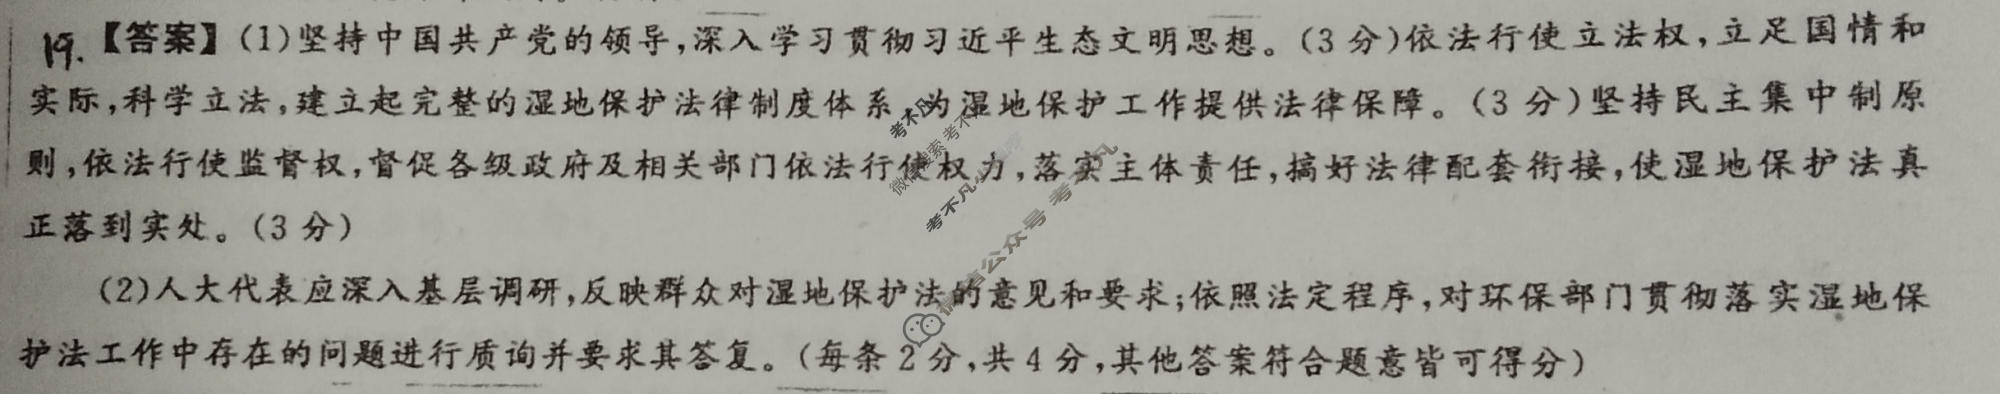 19.【答案】(1)坚持中国共产党的领导,深入学习贯彻习近平生态文明思想。(3分)依法行使立法权,立足国情和
实际,科学立法,建立起完整的湿地保护法律制度体系,为湿地保护工作提供法律保障。(3分)坚持民主集中制原
则,依法行使监督权,督促各级政府及相关部门依法行使权力,落实主体责任,搞好法律配套衔接,使湿地保护法真
正落到实处。(3分)
(2)人大代表应深入基层调研,反映群众对湿地保护法的意见和要求;依照法定程序,对环保部门贯彻落实湿地保
护法工作中存在的问题进行质询并要求其答复。(每条2分,共4分,其他答案符合题意皆可得分)
考不凡
微信搜索 考不凡
考不凡
微信公众号 考不凡